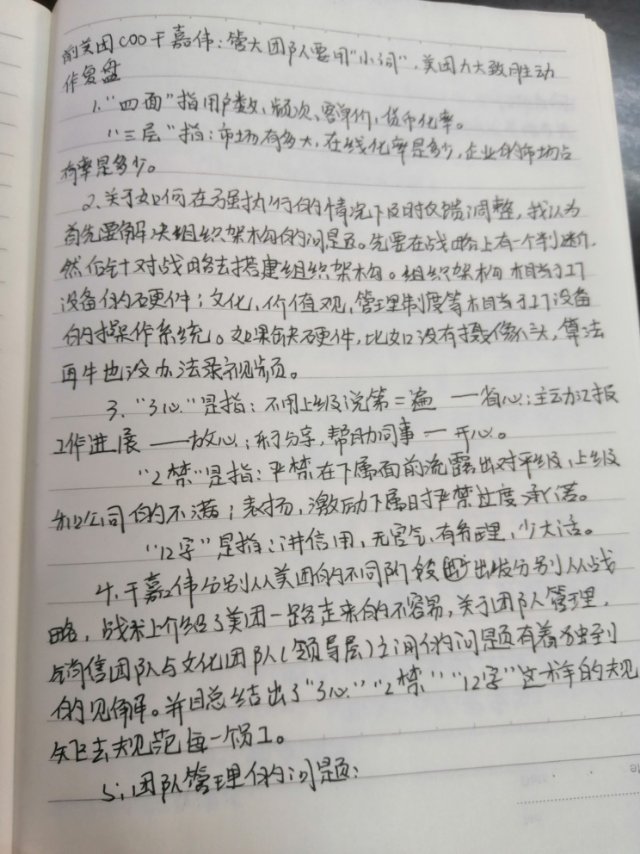 前美团COO干嘉伟：管大团队要用"小词"，美团九大致胜主动
作复盘
1."四面"指用户数，频次，客单价，货币化率。
"三层"指：市场有多大，在线化率是多少，企业的市场占
有率是多少。
2.关于如何在强执行的情况下及时反馈调整，我认为
首先要解决组织架构的问题。先要在战略上有一个判断，
然后针对战略去搭建组织架构。组织架构相当于IT
设备的硬件；文化，价值观，管理制度等相当于IT设备
的操作系统。如果缺硬件，比如没有摄像头，算法
再牛也没办法录视频。
3."3心"是指：不用上级说第二遍——省心；主动汇报
工作进展——放心；乐于分享，帮助同事——开心。
"2禁"是指：严禁在下属面前流露出对平级，上级
和公司的不满；表扬，激励下属时严禁过度承诺。
"12字"是指：讲信用，无官气，有条理，少大话。
4.干嘉伟分别从美团的不同阶段出发分别从战
略，战术上介绍了美团一路走来的不容易，关于团队管理，
销售团队与文化团队(领导层)之间的问题有着独到
的见解。并且总结出了"3心""2禁""12字"这样的规
矩去规范每一个员工。
5：团队管理的问题：